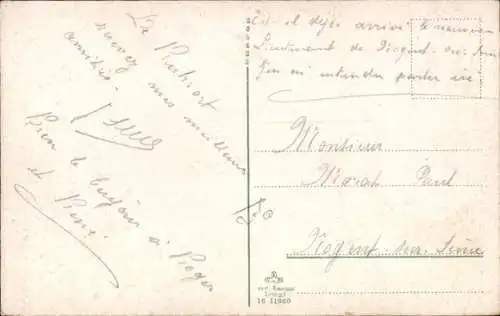 Le
recevez mes meilleurs
amitiés.
Bien le bonjour à Roger
et René
Est-il déjà arrivé le nouveau
Lieutenant de Nogent-sur-Seine
J'en ai entendu parler ici
Monsieur
Morat Paul
Nogent-sur-Seine
16 11960